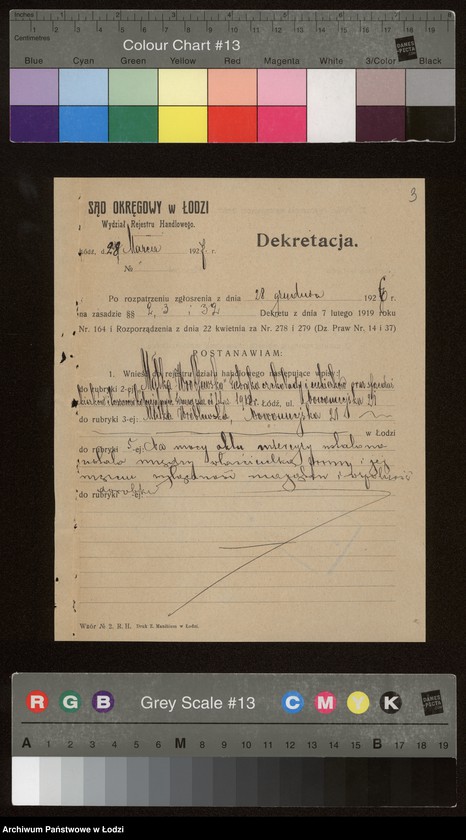 Inches
Centimetres
Colour Chart #13
DANES
PICTA
.COM
Blue Cyan Green Yellow Red Magenta White 3/Color Black
3
SĄD OKRĘGOWY w ŁODZI
Wydział Rejestru Handlowego.
Łódź, d. 28 Marca 1927 r.
Dekretacja.
№
Po rozpatrzeniu zgłoszenia z dnia 28 grudnia 1926 r.
na zasadzie §§ 2, 3 i 32 Dekretu z dnia 7 lutego 1919 roku
Nr. 164 i Rozporządzenia z dnia 22 kwietnia za Nr. 278 i 279 (Dz. Praw Nr, 14 i 37)
POSTANAWIAM:
1. Wnieść do rejestru działu handlowego następujące wpisy:
do rubryki 2-ej: sprzedaż czekolady i
Łódź, ul. Nowomiejska 21
do rubryki 3-ej: Nowomiejska 21
w Łodzi
do rubryki 5-ej: Na mocy aktu intercyzy
między właścicielką firmy i jej
mężem wyłączność majątku i wspólność
do rubryki -ej: dorobku
Wzór № 2. R. H. Druk Z. Manitius w Łodzi.
R G B Grey Scale #13 C M Y K
DANES
PICTA
.COM
A 1 2 3 4 5 6 M 8 9 10 11 12 13 14 15 B 17 18 19
Archiwum Państwowe w Łodzi